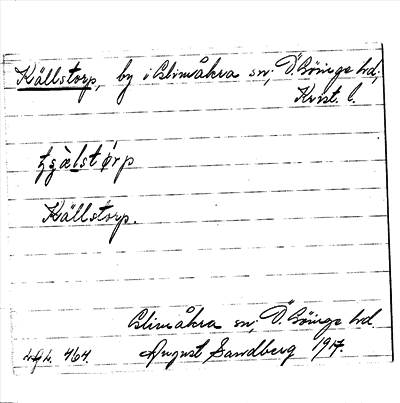 Källstorp, by i Glimåkra sn, Ö. Göinge hd,
Krist. l.
Källstorp.
Glimåkra sn, Ö. Göinge hd
464. August Sandberg 1917.